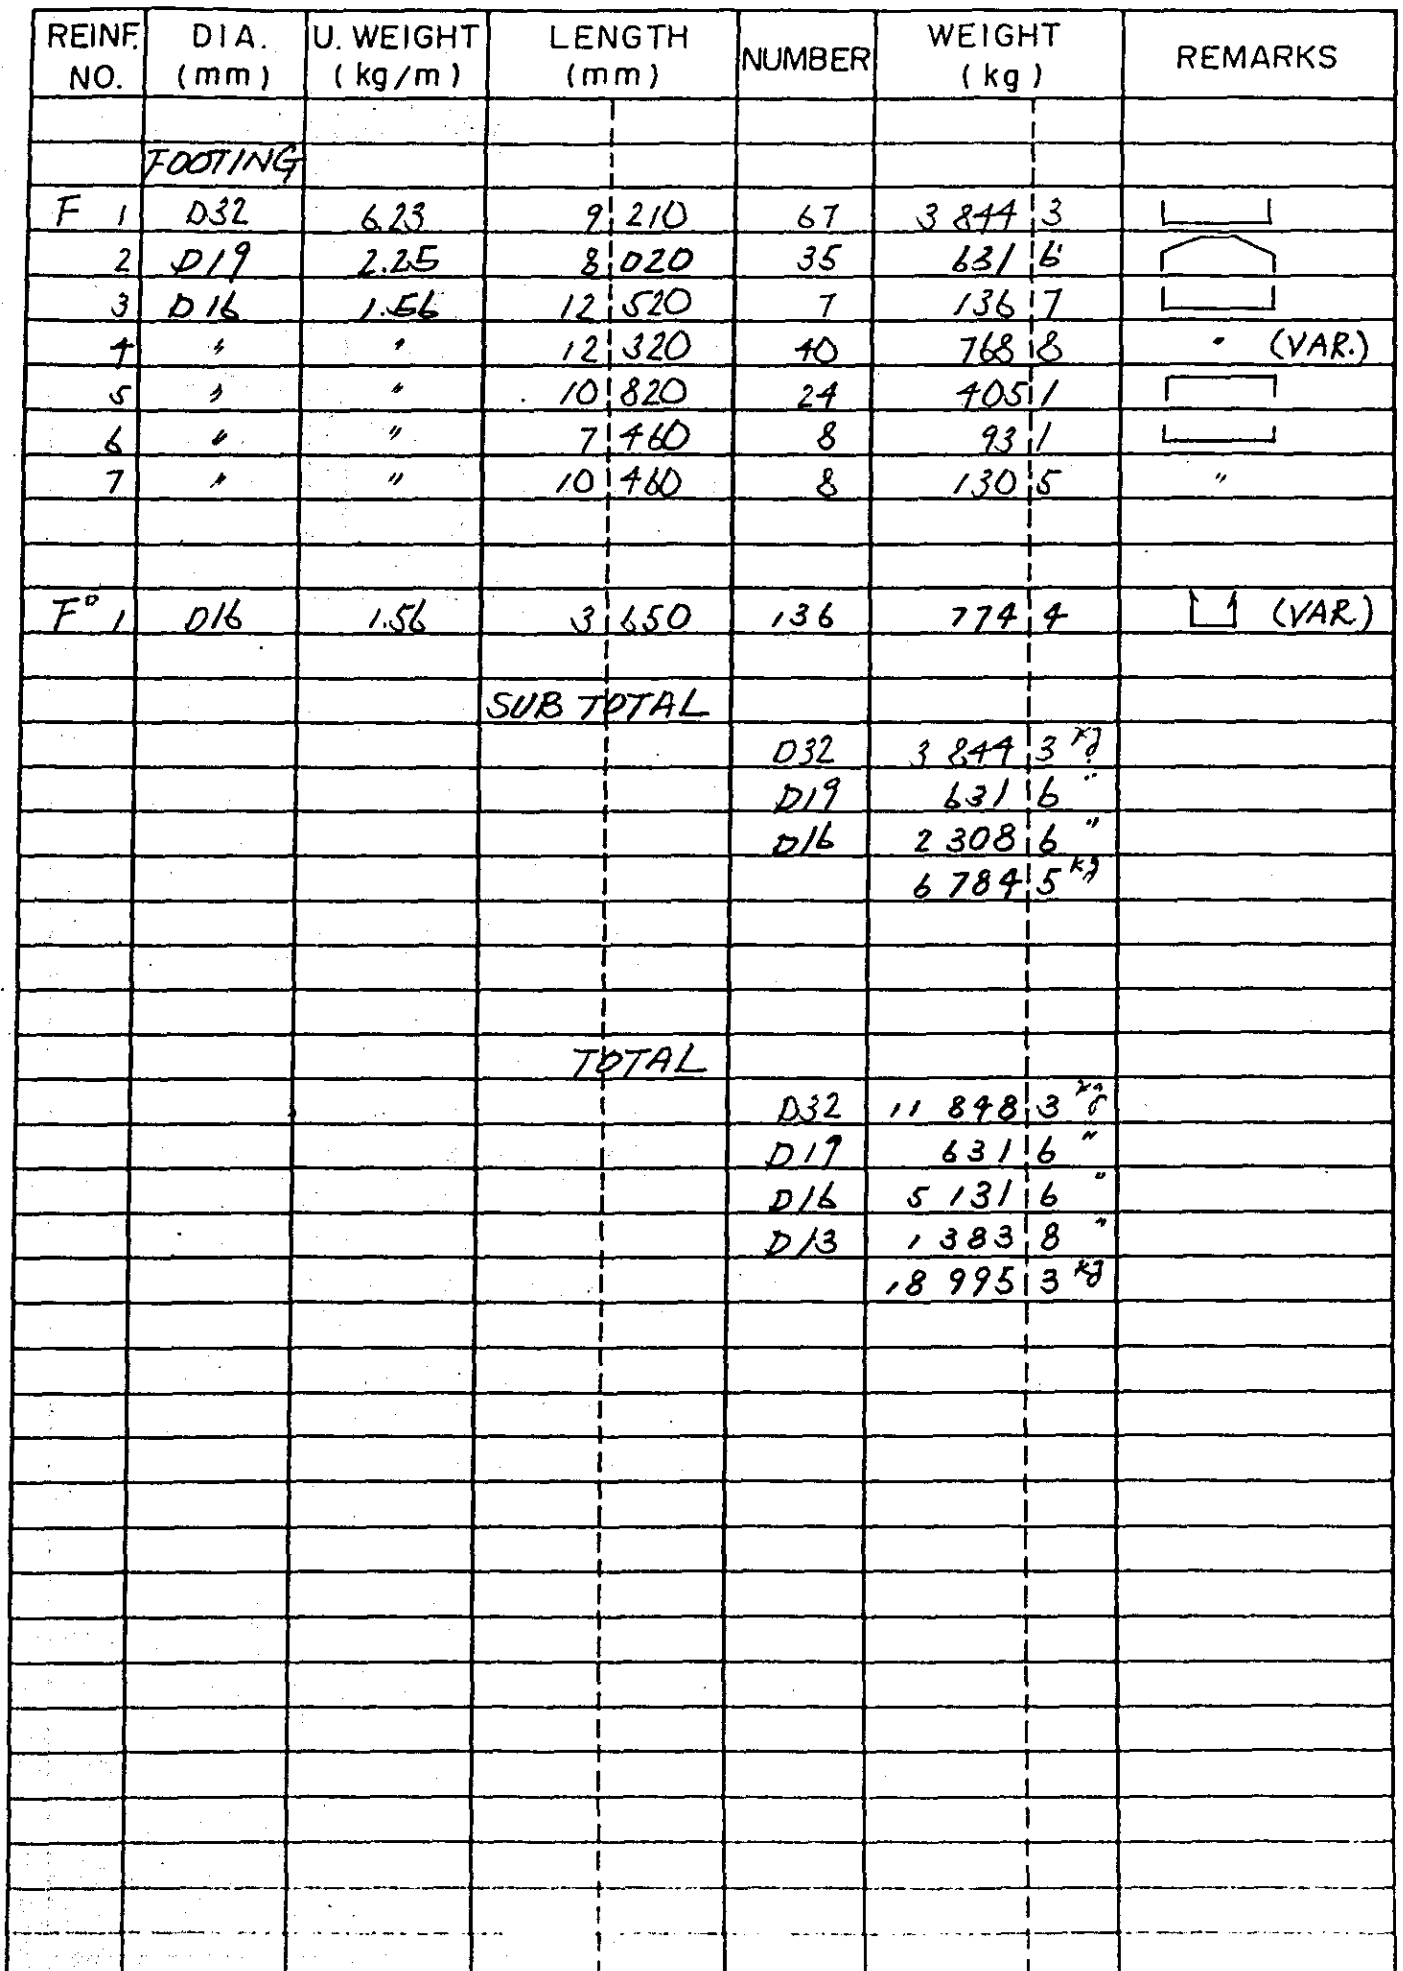 REINF. NO. DIA. (mm) U. WEIGHT (kg/m) LENGTH (mm) NUMBER WEIGHT (kg) REMARKS
FOOTING
F 1 D32 6.23 9 210 67 3 844 3
2 D19 2.25 8 020 35 631 6
3 D16 1.56 12 520 7 136 7
4 " " 12 320 40 768 8 " (VAR.)
5 " " 10 820 24 405 1
6 " " 7 460 8 93 1
7 " " 10 460 8 130 5 "
F° 1 D16 1.56 3 650 136 774 4 (VAR.)
SUB TOTAL
D32 3 844 3 kg
D19 631 6 "
D16 2 308 6 "
6 784 5 kg
TOTAL
D32 11 848 3 kg
D19 631 6 "
D16 5 131 6 "
D13 1 383 8 "
18 995 3 kg